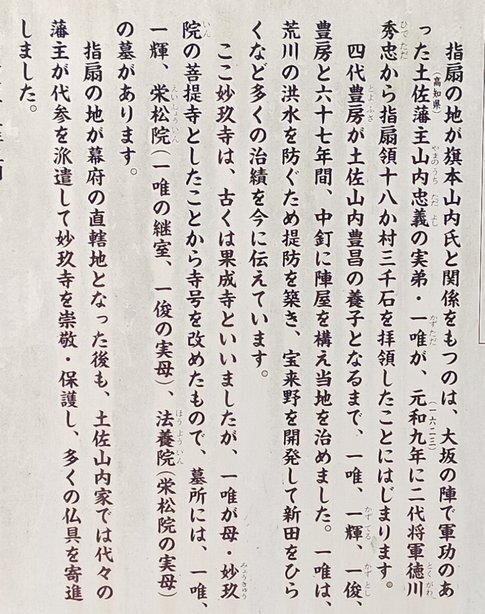 指扇の地が旗本山内氏と関係をもつのは、大坂の陣で軍功のあ
った土佐(高知県)藩主山内(やまのうち)忠義(ただよし)の実弟・一唯(かずただ)が、元和九年(一六二三)に二代将軍徳川(とくがわ)
秀忠(ひでただ)から指扇領十八か村三千石を拝領したことにはじまります。
四代豊房(とよふさ)が土佐山内豊昌の養子となるまで、一唯、一輝(かずてる)、一俊(かずとし)、
豊房と六十七年間、中釘に陣屋を構え当地を治めました。一唯は、
荒川の洪水を防ぐため堤防を築き、宝来野を開発して新田をひら
くなど多くの治績を今に伝えています。
ここ妙玖寺は、古くは果成寺といいましたが、一唯が母・妙玖(みょうきゅう)
院(いん)の菩提寺としたことから寺号を改めたもので、墓所には、一唯、
一輝、栄松院(えいしょういん)(一唯の継室、一俊の実母)、法養院(ほうよういん)(栄松院の実母)
の墓があります。
指扇の地が幕府の直轄地となった後も、土佐山内家では代々の
藩主が代参を派遣して妙玖寺を崇敬・保護し、多くの仏具を寄進
しました。